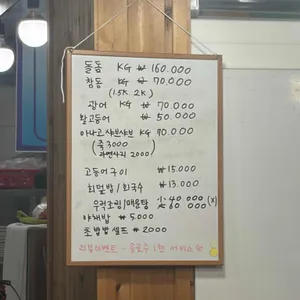 돌돔 KG ₩ 160.000
참돔 KG ₩ 70.000
(1.5K. 2K)
광어 KG ₩ 70.000
활고등어 ₩ 50.000
아나고 샤브샤브 KG 90.000
(죽 3000
라면사리 2000)
고등어구이 ₩ 15.000
회덮밥/회국수 ₩ 13.000
우럭조림/매운탕 小 40 000 (x)
大 60 000
야채밥 ₩ 5.000
초밥밥 셀프 ₩ 2000
리뷰이벤트 - 음료수 1캔 서비스